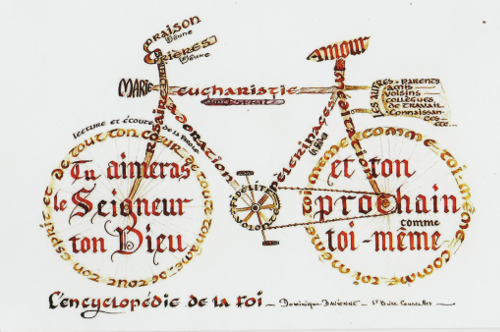 Oraison
Jeûne
Prières
Jeûne
Amour
Marie
eucharistie
Les autres - Parents
amis
voisins
collègues
de travail
connaissan-
ces
etc...
adoration
Pèlerinages
lecture et écoute de la Parole
de tout ton cœur - de toute ton âme - de tout ton esprit et
Tu aimeras
le Seigneur
ton Dieu
Fidélité
comme toi-même
et ton
prochain
comme
toi-même
L'encyclopédie de la Foi - Dominique Davienne -